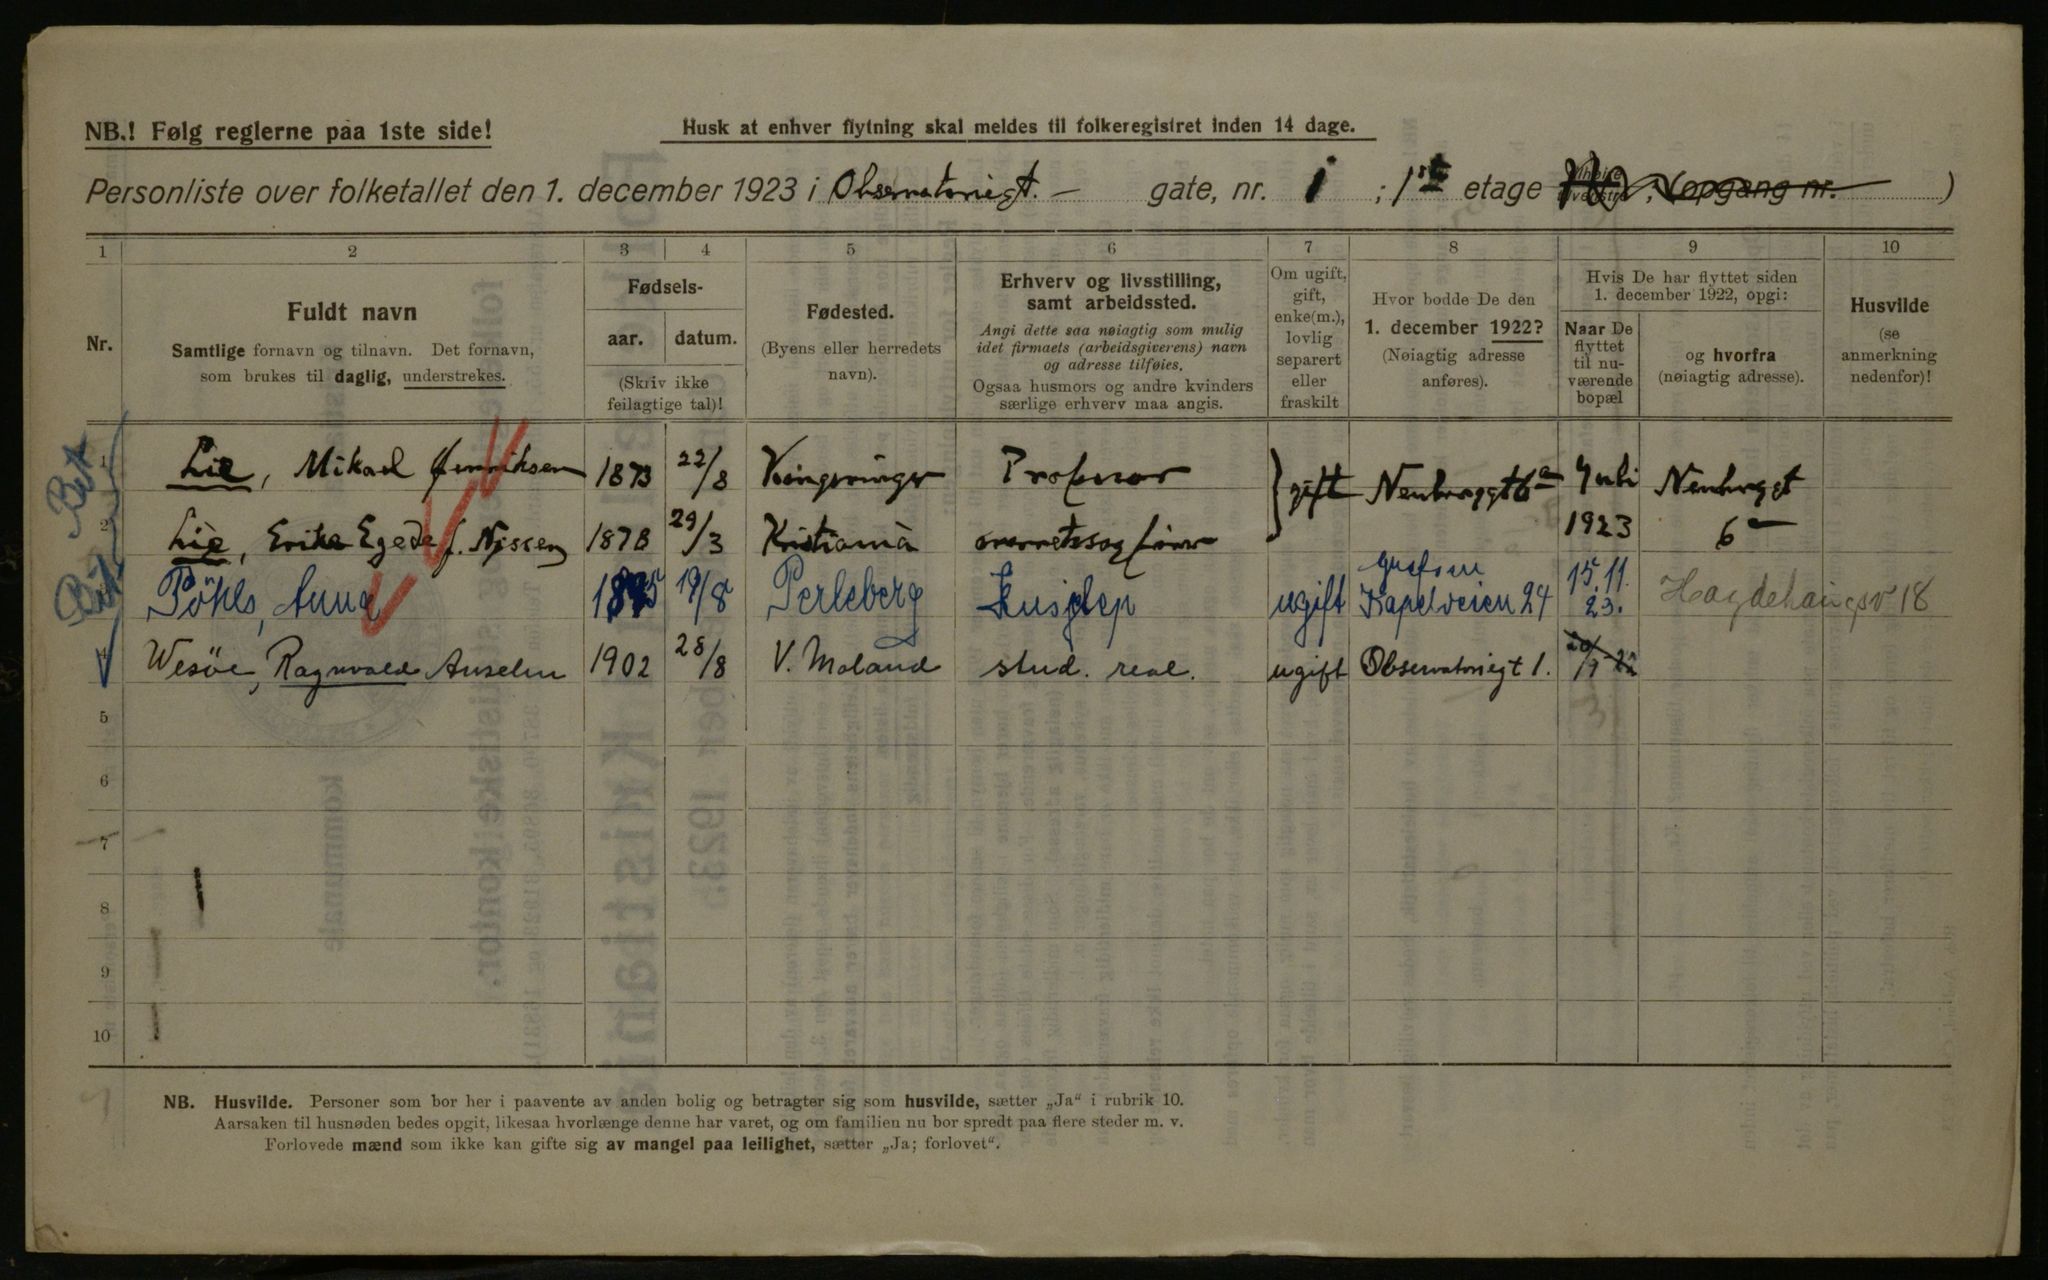 NB.! Følg reglerne paa 1ste side!
Husk at enhver flytning skal meldes til folkeregistret inden 14 dage.
Personliste over folketallet den 1. december 1923 i Observatoriegt. — gate, nr. 1 ; 1ste etage opgang nr. )
1 2 3 4 5 6 7 8 9 10
Nr.
Fuldt navn
Samtlige fornavn og tilnavn. Det fornavn,
som brukes til daglig, understrekes.
Fødsels-
aar. datum.
(Skriv ikke
feilagtige tal)!
Fødested.
(Byens eller herredets
navn).
Erhverv og livsstilling,
samt arbeidssted.
Angi dette saa nøiagtig som mulig
idet firmaets (arbeidsgiverens) navn
og adresse tilføies.
Ogsaa husmors og andre kvinders
særlige erhverv maa angis.
Om ugift,
gift,
enke(m.),
lovlig
separert
eller
fraskilt
Hvor bodde De den
1. december 1922?
(Nøiagtig adresse
anføres).
Hvis De har flyttet siden
1. december 1922, opgi:
Naar De
flyttet
til nu-
værende
bopæl
og hvorfra
(nøiagtig adresse).
Husvilde
(se
anmerkning
nedenfor)!
1 Lie, Mikael Henriksen 1873 22/8 Kongsvinger Professor gift Nenbryggt 6a Juli
2 Lie, Erika Egede f. Nissen 1873 29/3 Kristiania gift 1923 6a
Pöhls, Anna 19/8 Perleberg Husjelp ugift Kapelveien 24 15.11.23. 18
4 Wesöe, Ragnvald Anselm 1902 28/8 V. Moland stud. real. ugift Observatoriegt 1.
5
6
7
8
9
10
NB. Husvilde. Personer som bor her i paavente av anden bolig og betragter sig som husvilde, sætter „Ja“ i rubrik 10.
Aarsaken til husnøden bedes opgit, likesaa hvorlænge denne har varet, og om familien nu bor spredt paa flere steder m. v.
Forlovede mænd som ikke kan gifte sig av mangel paa leilighet, sætter „Ja; forlovet“.